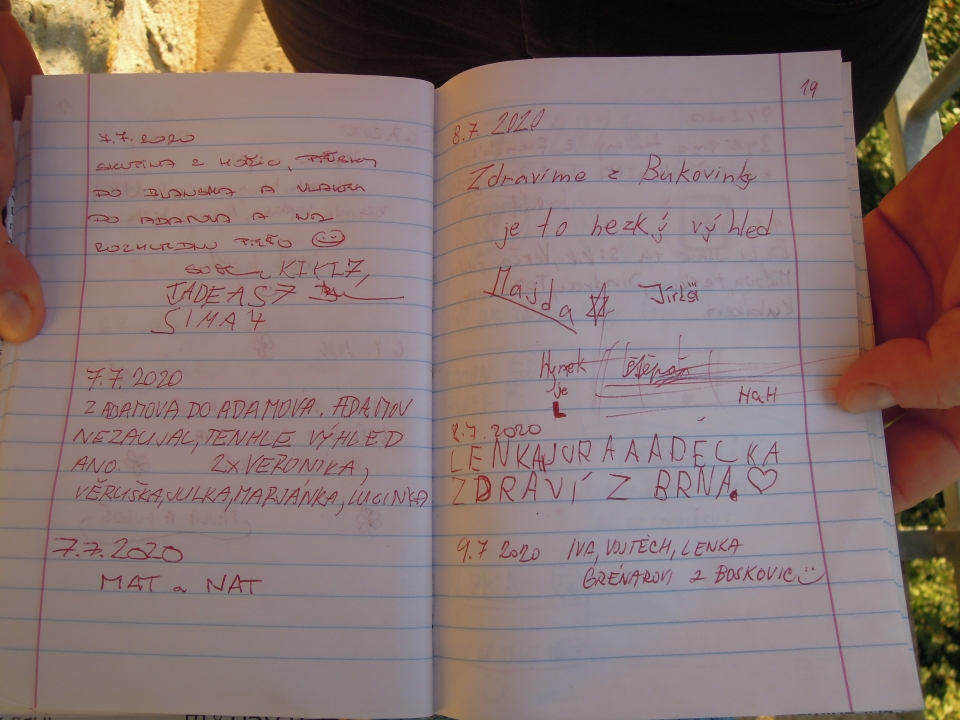 7.7.2020
SKUPINA Z
DO BLANSKA A VLAKEM
DO ADAMOVA A NA
ROZHLEDNU PĚŠKO ☺
KIKI 7,
TADEAS 7
SIMA 4
7.7.2020
Z ADAMOVA DO ADAMOVA. ADAMOV
NEZAUJAL, TENHLE VÝHLED
ANO. 2x VERONIKA,
VĚRUŠKA, JULKA, MARJÁNKA, LUCINKA
7.7.2020
MAT a NAT
19
8.7.2020
Zdravíme z Bukovinky
je to hezký výhled
Majda Jiříš
Hynek Štěpán
je HaH
L
8.7.2020
LENKA, JURA A ADÉLKA
ZDRAVÍ Z BRNA. ♡
9.7 2020 IVA, VOJTĚCH, LENKA
GRÉNAROVI Z BOSKOVIC ☺